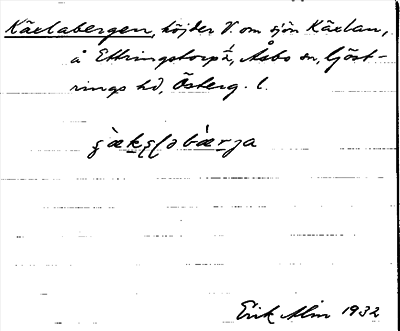 Käxlabergen, höjder V. om sjön Käxlan,
å Ettringstorps ä., Åsbo sn, Göst-
rings hd, Österg. l.
Erik Alm 1932